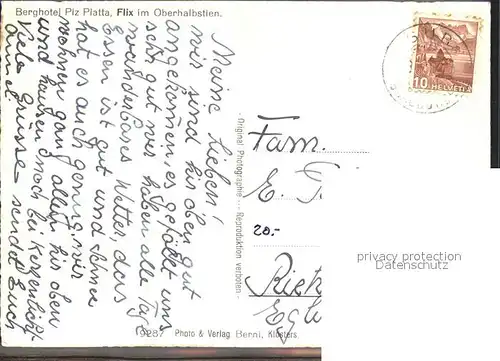 Berghotel Piz Platta, Flix im Oberhalbstien.
Meine Lieben!
wir sind hir oben gut
angekommen, es gefällt uns
sehr gut wir haben alle Tage
wunderbares Wetter, das
Essen ist gut und Schnee
hat es auch genug, wir
wohnen ganz allein hir oben
und hausen noch bei Kerzenlicht
Viele Grüsse sendet Euch
Original Photographie — Reproduktion verboten
10 HELVETIA
Fam.
E. T.
20.-
privacy protection
Datenschutz
6287 Photo & Verlag Berni, Klosters